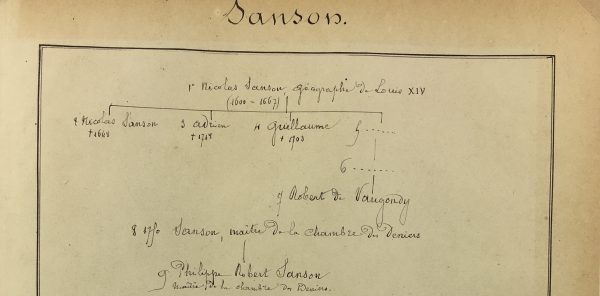 Sanson.
1º Nicolas Sanson, géographe de Louis XIV
(1600 - 1667)
2 Nicolas Sanson 3 Adrien 4 Guillaume 5 .......
† 1648 † 1718 † 1703
6 .......
7 Robert de Vaugondy
8 1750 Sanson, maître de la chambre des Deniers
9 Philippe Robert Sanson
Maître de la chambre des Deniers.